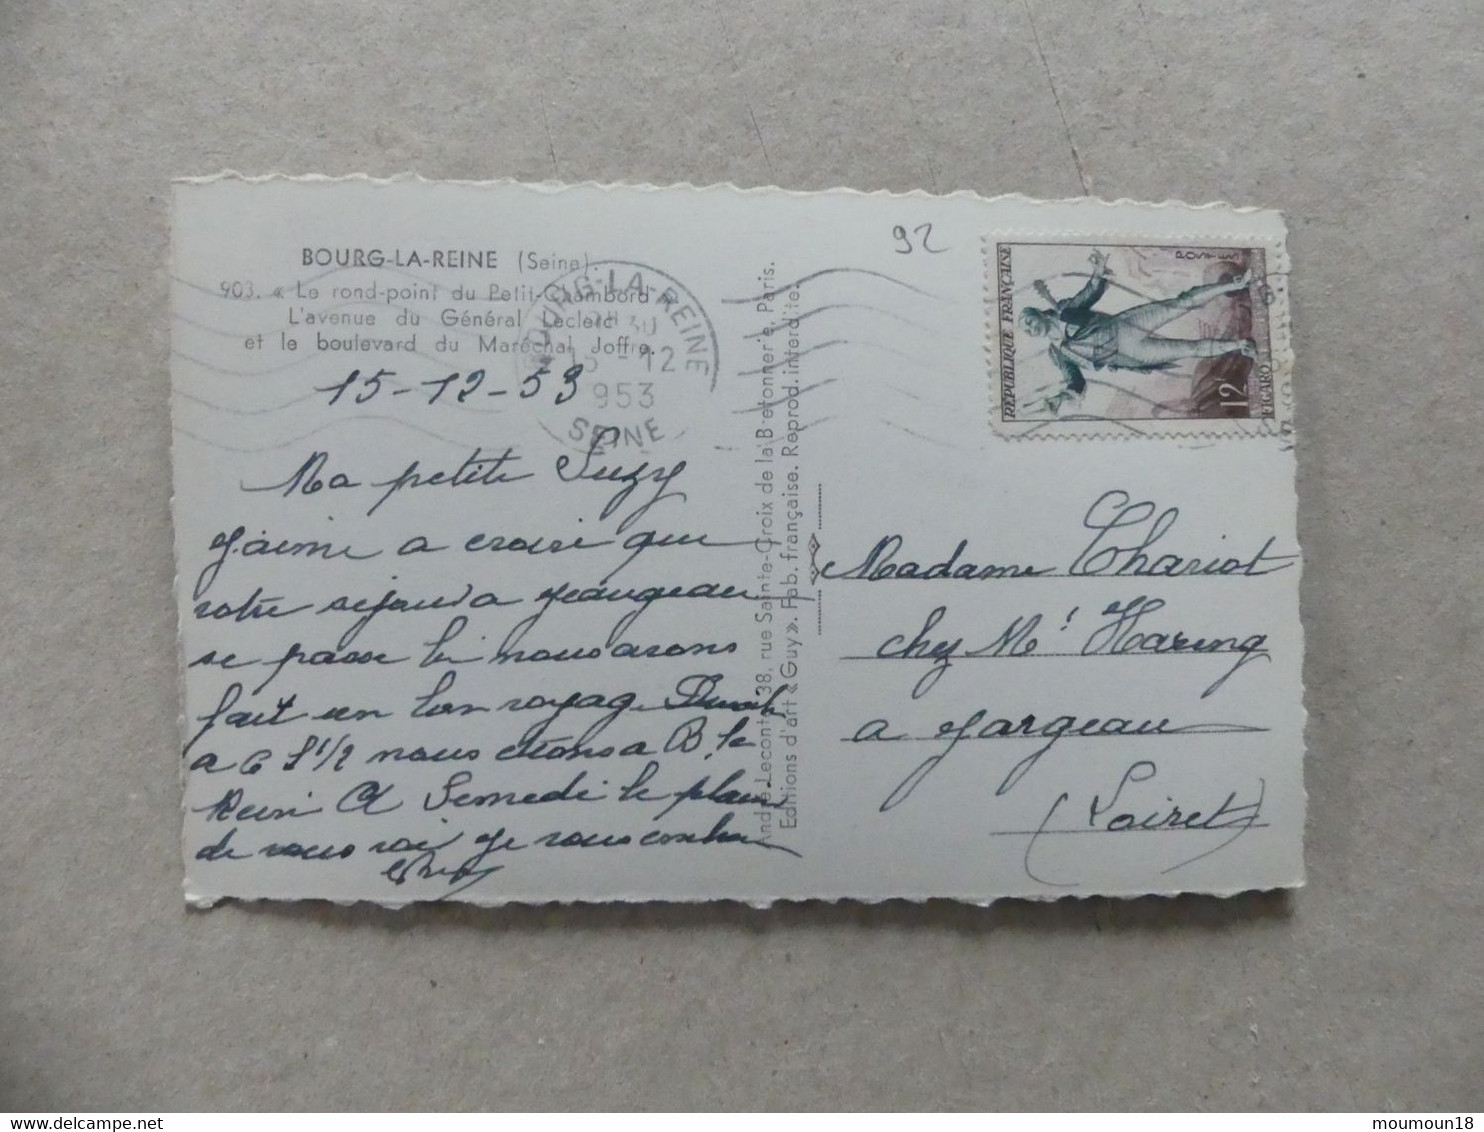 BOURG-LA-REINE (Seine).
903. « Le rond-point du Petit-Chambord
L'avenue du Général Leclerc
et le boulevard du Maréchal Joffre.
BOURG-LA-REINE
15 -12
953
SEINE
15-12-53
Ma petite Suzy
J'aime a croire que
votre séjour a Jeargeau
se passe bi nous avons
fait un bon voyag
a 6 h 1/2 nous etions a B. la
Reine A Semedi le plaisi
de vous voir Je vous
André Leconte, 38, rue Sainte-Croix de la Bretonnerie, Paris.
Editions d'art « Guy ». Fab. française. Reprod. interdite.
92
REPUBLIQUE FRANÇAISE
POSTES
12
FIGARO
Madame Chariot
chez Mr Haring
a Jargeau
(Loiret)
moumoun18